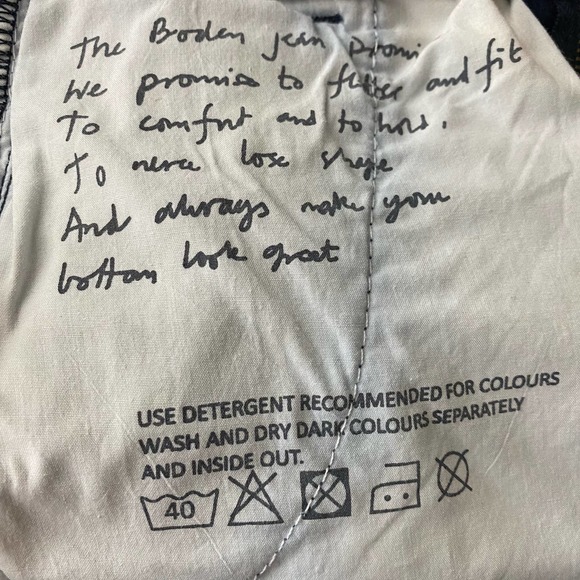 The Boden jean promi
We promise to flatter and fit
To comfort and to hold.
To never lose shape
And always make your
bottom look great
USE DETERGENT RECOMMENDED FOR COLOURS
WASH AND DRY DARK COLOURS SEPARATELY
AND INSIDE OUT.
40